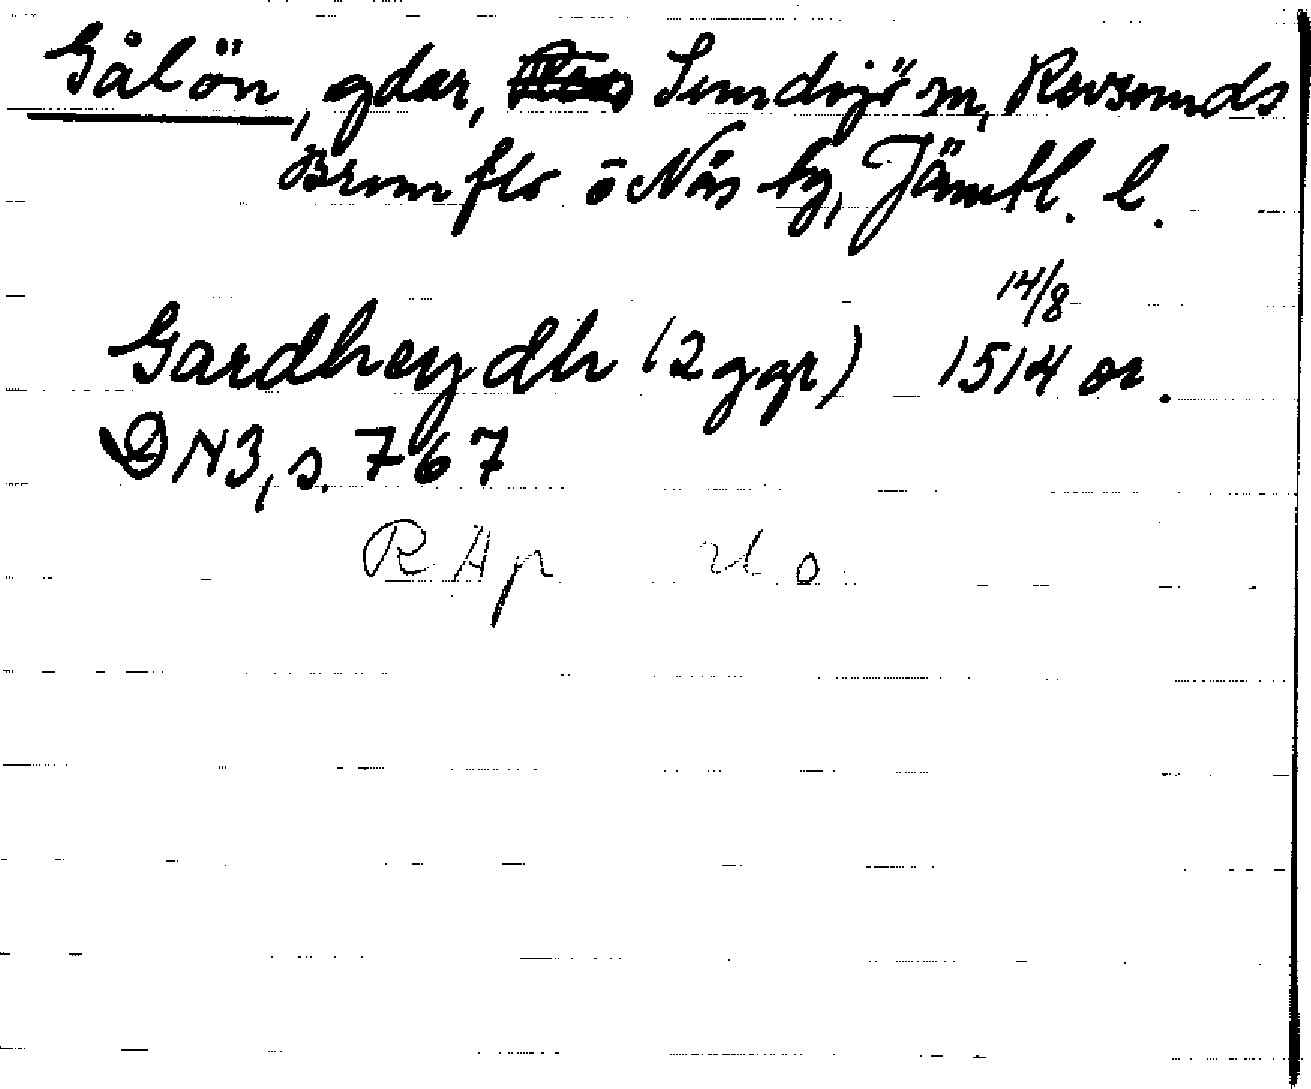 Gålön, gdar, Sundsjö sn, Revsunds
Brunflo o Näs tg, Jämtl. l.
14/8
Gardheydh (2 ggr) 1514 or.
DN3, s. 767
RAp